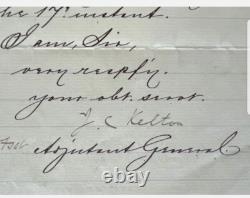 the 17th instant.
I am, Sir,
very respfy.
your obt. servt.
J. C Kelton
Asst Adjutant General